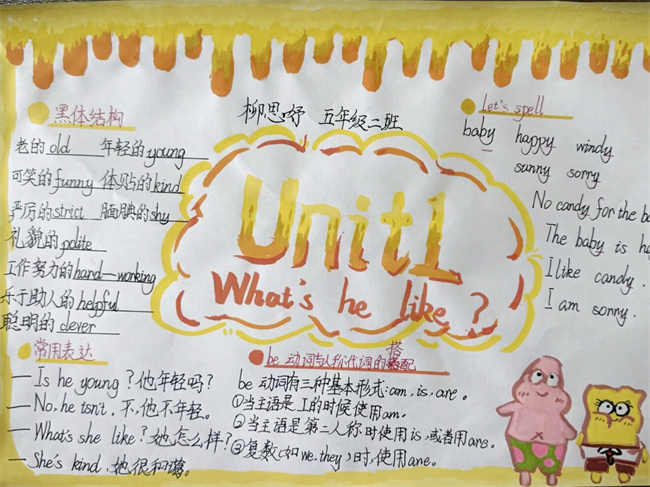 柳思妤 五年级二班
黑体结构
老的old 年轻的young
可笑的funny 体贴的kind
严厉的strict 腼腆的shy
礼貌的polite
工作努力的hard-working
乐于助人的helpful
聪明的clever
Unit1
What's he like?
Let's spell
baby happy windy
sunny sorry
No candy for the ba
The baby is ha
I like candy.
I am sorry.
常用表达
— Is he young?他年轻吗?
— No, he isn't, 不,他不年轻。
— What's she like?她怎么样?
— She's kind, 她很和蔼。
be 动词与人称代词的搭配
be 动词有三种基本形式:am, is, are.
①当主语是I的时候使用am.
②当主语是第二人称时使用is,或者用are.
③复数(如we, they)时使用are.